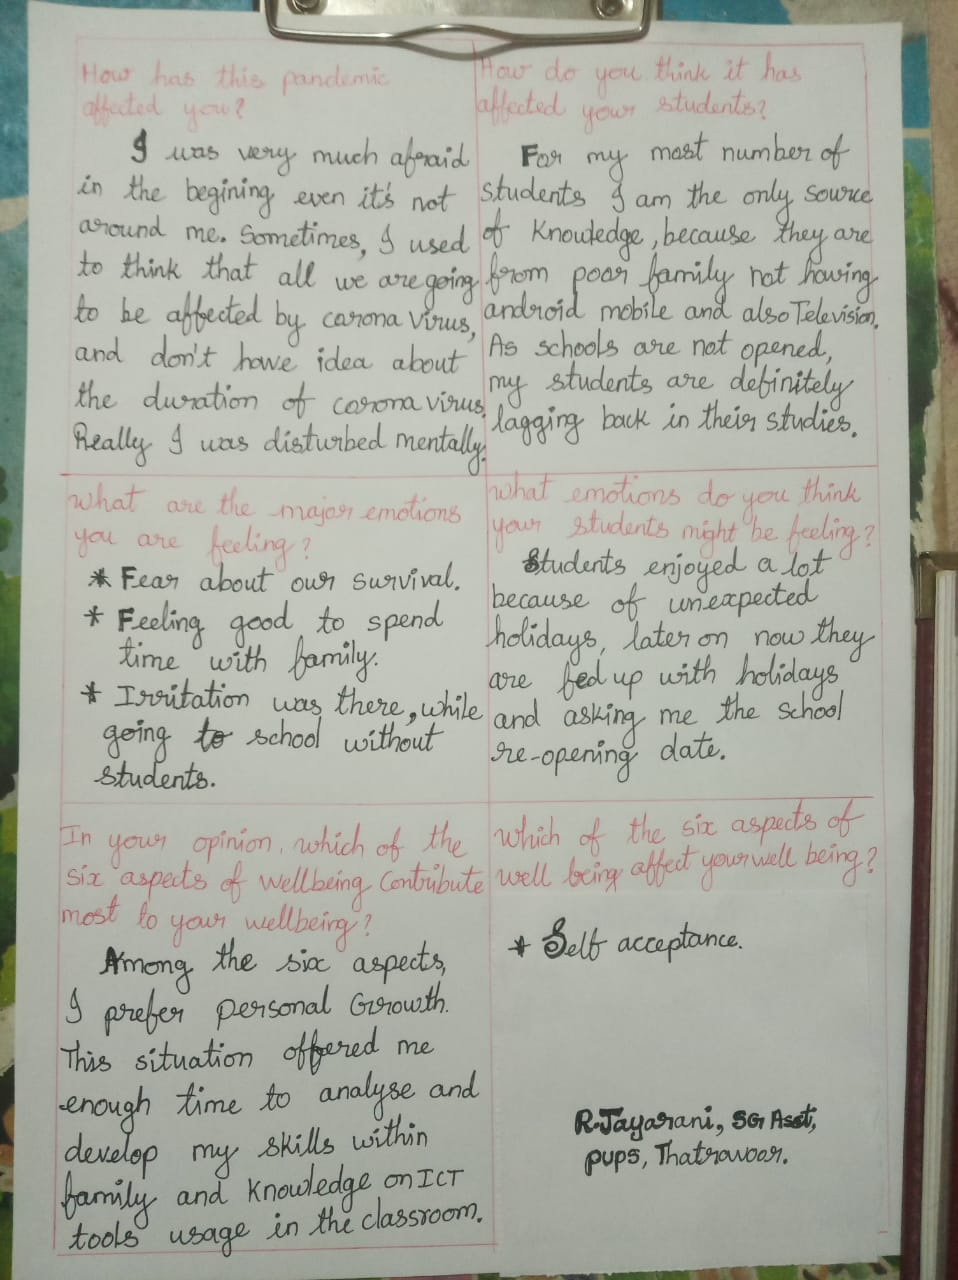 How has this pandemic
affected you?
I was very much afraid
in the begining even it's not
around me. Sometimes, I used
to think that all we are going
to be affected by carona virus,
and don't have idea about
the duration of corona virus.
Really I was disturbed mentally.
How do you think it has
affected your students?
For my most number of
students I am the only source
of Knowledge, because they are
from poor family not having
android mobile and also Television.
As schools are not opened,
my students are definitely
lagging back in their studies.
What are the major emotions
you are feeling?
* Fear about our survival.
* Feeling good to spend
time with family.
* Irritation was there, while
going to school without
students.
What emotions do you think
your students might be feeling?
Students enjoyed a lot
because of unexpected
holidays, later on now they
are fed up with holidays
and asking me the school
re-opening date.
In your opinion, which of the
six aspects of wellbeing contribute
most to your wellbeing?
Among the six aspects,
I prefer personal Growth.
This situation offered me
enough time to analyse and
develop my skills within
family and knowledge on ICT
tools usage in the classroom.
Which of the six aspects of
well being affect your well being?
* Self acceptance.
R.Jayarani, SG Asst,
pups, Thatravoor.